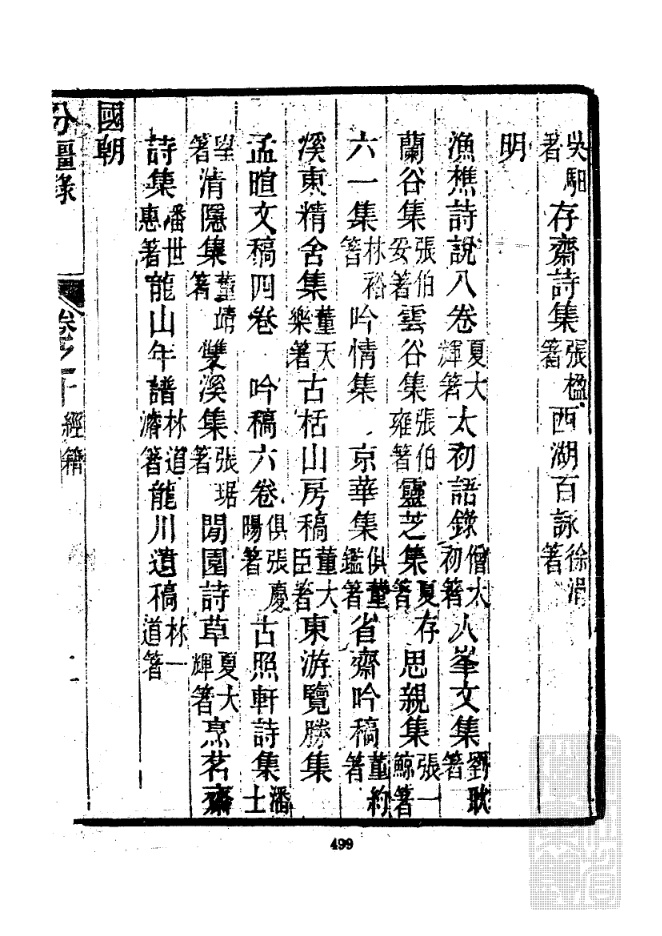 吳駰著存齋詩集張楹著西湖百詠徐涓著
明
漁樵詩說八卷夏大輝著太初語錄僧太初著人峯文集劉耿著
蘭谷集張伯安著雲谷集張伯雍著靈芝集夏存著思親集張一鯨著
六一集林裕著吟情集　京華集俱董鑑著省齋吟稿董約著
溪東精舍集董天樂著古栝山房稿董大臣著東游覽勝集
孟暄文稿四卷　吟稿六卷俱張慶陽著古照軒詩集潘士
瑆著清隱集董靖著雙溪集張琚著閒園詩草夏大輝著烹茗齋
詩集潘世惠著龍山年譜林道濟著龍川遺稿林一道著
國朝
分疆錄　卷之十　經籍　十一
499